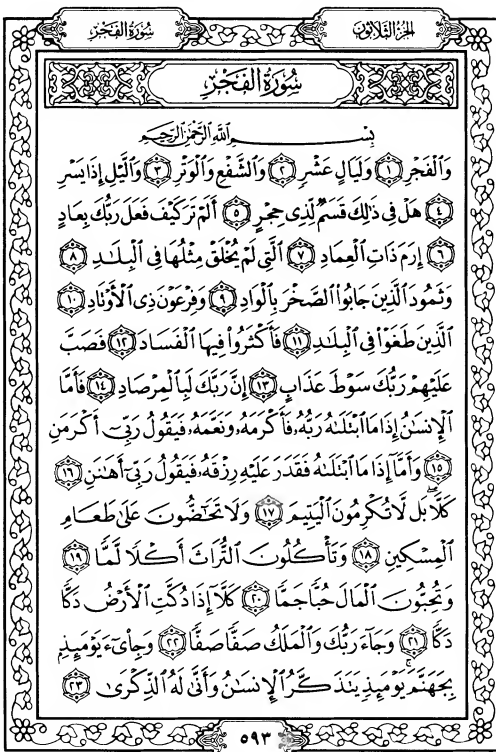 سُورَةُ الفَجْرِ
الجُزْءُ الثَّلَاثُونَ
سُورَةُ الفَجْرِ
بِسْمِ اللَّهِ الرَّحْمَٰنِ الرَّحِيمِ
وَالْفَجْرِ ١ وَلَيَالٍ عَشْرٍ ٢ وَالشَّفْعِ وَالْوَتْرِ ٣ وَاللَّيْلِ إِذَا يَسْرِ
٤ هَلْ فِي ذَٰلِكَ قَسَمٌ لِّذِي حِجْرٍ ٥ أَلَمْ تَرَ كَيْفَ فَعَلَ رَبُّكَ بِعَادٍ
٦ إِرَمَ ذَاتِ الْعِمَادِ ٧ الَّتِي لَمْ يُخْلَقْ مِثْلُهَا فِي الْبِلَٰدِ ٨
وَثَمُودَ الَّذِينَ جَابُوا الصَّخْرَ بِالْوَادِ ٩ وَفِرْعَوْنَ ذِي الْأَوْتَادِ ١٠
الَّذِينَ طَغَوْا فِي الْبِلَٰدِ ١١ فَأَكْثَرُوا فِيهَا الْفَسَادَ ١٢ فَصَبَّ
عَلَيْهِمْ رَبُّكَ سَوْطَ عَذَابٍ ١٣ إِنَّ رَبَّكَ لَبِالْمِرْصَادِ ١٤ فَأَمَّا
الْإِنسَٰنُ إِذَا مَا ابْتَلَىٰهُ رَبُّهُۥ فَأَكْرَمَهُۥ وَنَعَّمَهُۥ فَيَقُولُ رَبِّيٓ أَكْرَمَنِ
١٥ وَأَمَّآ إِذَا مَا ابْتَلَىٰهُ فَقَدَرَ عَلَيْهِ رِزْقَهُۥ فَيَقُولُ رَبِّيٓ أَهَٰنَنِ ١٦
كَلَّا ۖ بَل لَّا تُكْرِمُونَ الْيَتِيمَ ١٧ وَلَا تَحَٰٓضُّونَ عَلَىٰ طَعَامِ
الْمِسْكِينِ ١٨ وَتَأْكُلُونَ التُّرَاثَ أَكْلًا لَّمًّا ١٩
وَتُحِبُّونَ الْمَالَ حُبًّا جَمًّا ٢٠ كَلَّآ إِذَا دُكَّتِ الْأَرْضُ دَكًّا
دَكًّا ٢١ وَجَآءَ رَبُّكَ وَالْمَلَكُ صَفًّا صَفًّا ٢٢ وَجِا۟يٓءَ يَوْمَئِذٍۭ
بِجَهَنَّمَ ۚ يَوْمَئِذٍ يَتَذَكَّرُ الْإِنسَٰنُ وَأَنَّىٰ لَهُ الذِّكْرَىٰ ٢٣
٥٩٣